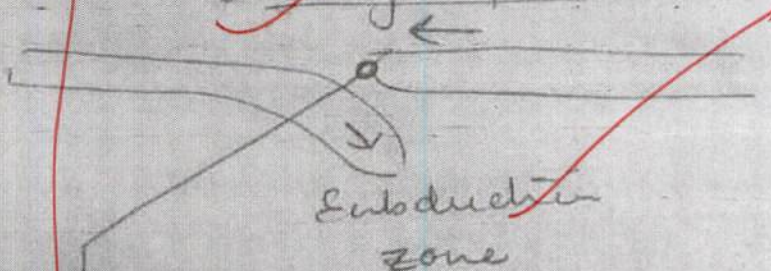 Subduction
zone